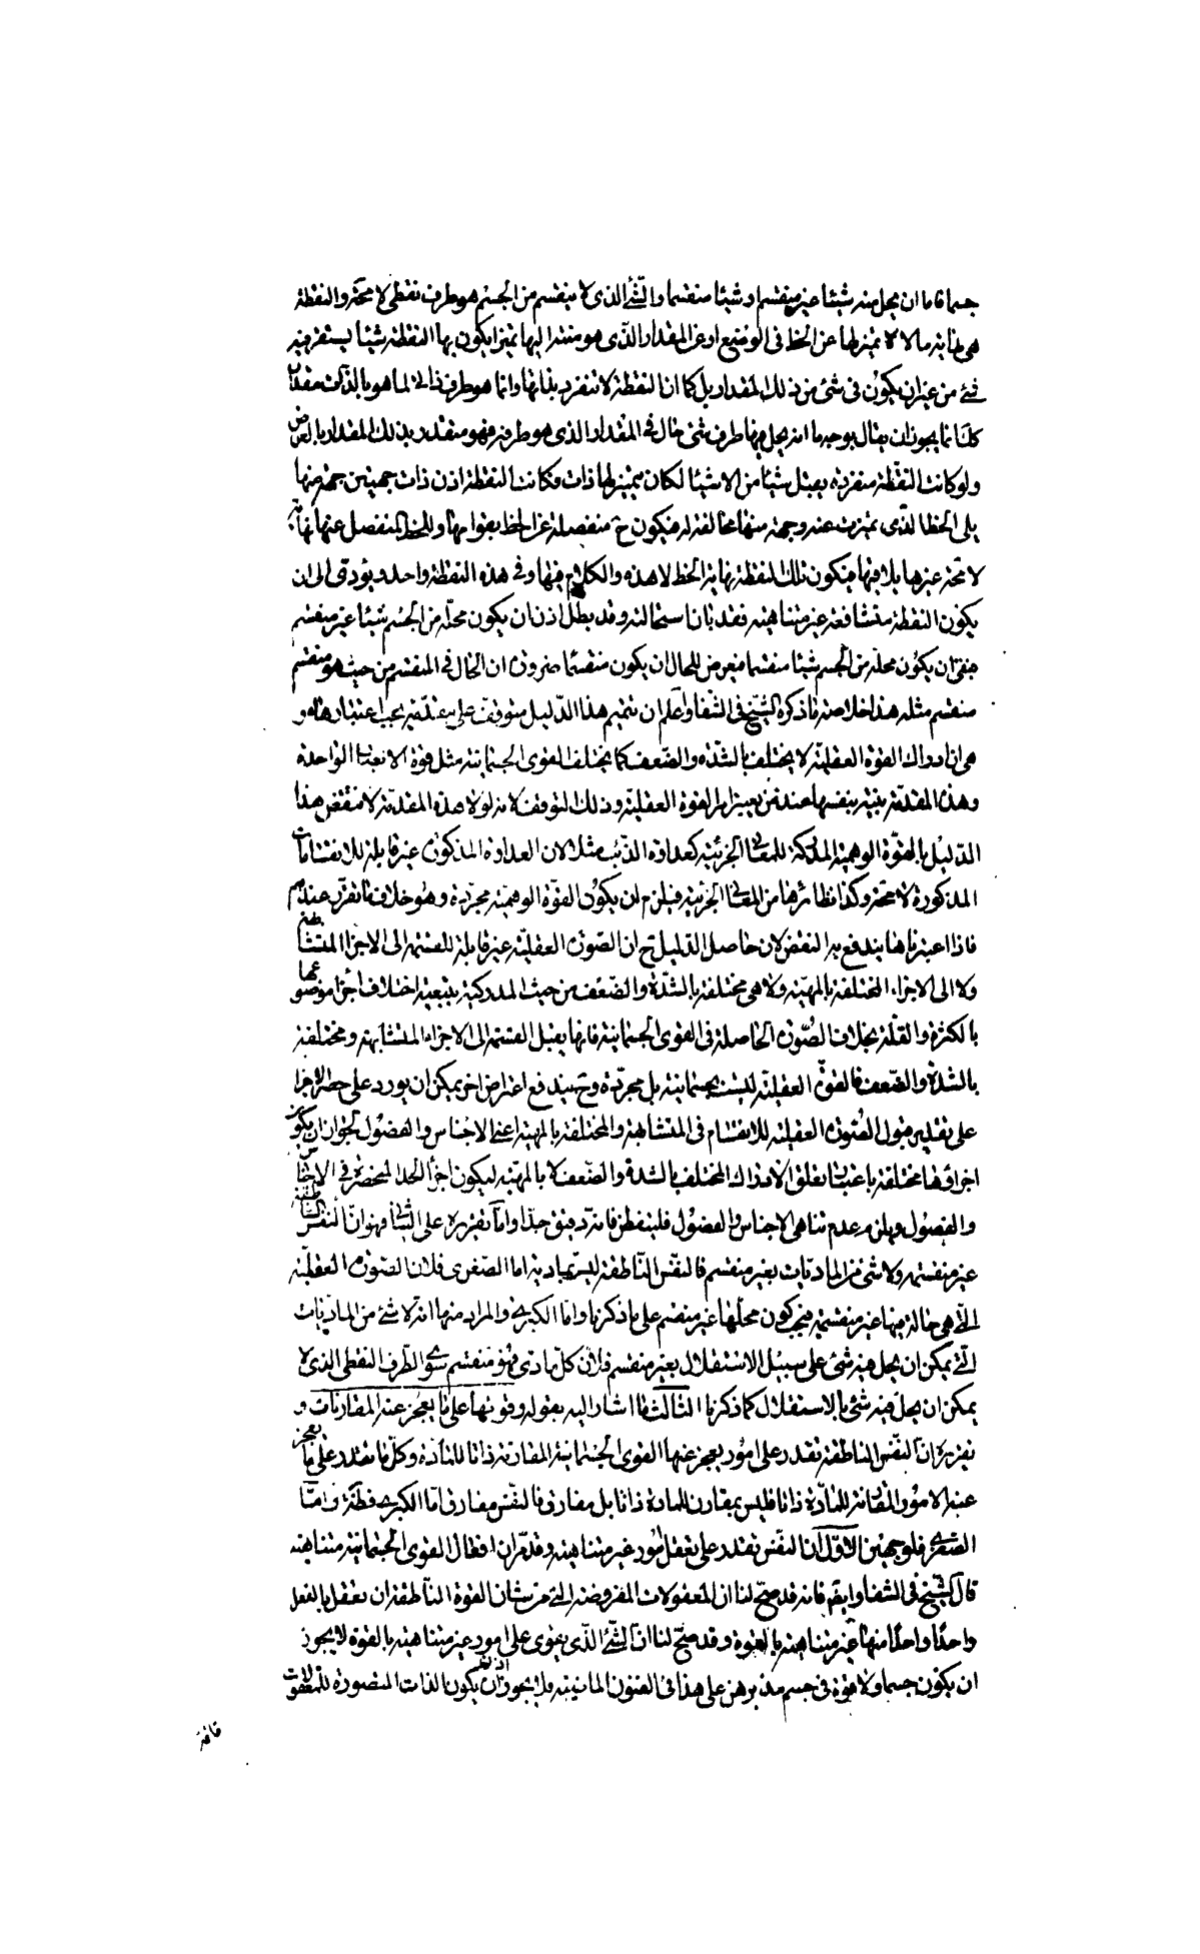 جسما فاما ان يحل منه شيئا غير منقسم او شيئا منقسما والشئ الذى لا ينقسم من الجسم هو طرف نقطى لا محة والنقطة
هى نهاية ما لا تميز لها عن الخط فى الوضع او عن المقدار الذى هو منته اليها تميزا يكون بها النقطة شيئا يستقر فيه
شئ من غير ان يكون فى شئ من ذلك المقدار بل كما ان النقطة لا تنفرد بذاتها وانما هو طرف ذاتى لما هو بالذات مقدار
كك انما يجوز ان يقال بوجه ما انه يحل فيها طرف شئ حال فى المقدار الذى هو طرفه فهو متقدر بذلك المقدار بالعرض
ولو كانت النقطة منفردة يقبل شيئا من الاشيا لكان يتميز لها ذات فكانت النقطة اذن ذات جهتين جهة منها
يلى الخط الذى تميزت عنه وجهة منها مخالفة له فيكون ح منفصلة عن الخط بقوامها وللخط المنفصل عنها نهاية
لا محة غيرها يلاقيها فيكون تلك النقطة نهاية الخط لا هذه والكلام فيها وفى هذه النقطة واحد ويؤدى الى ان
يكون النقطة متشافعة غير متناهية فقد بان استحالته وقد بطل اذن ان يكون محله من الجسم شيئا غير منقسم
فبقى ان يكون محله من الجسم شيئا منقسما فيعرض للحال ان يكون منقسما ضرورة ان الحال فى المنقسم من حيث هو منقسم
منقسم مثله هذا خلاصة ما ذكره الشيخ فى الشفا واعلم ان تتميم هذا الدليل متوقف على مقدمة يجب اعتبارها و
هى ان ادراك القوة العقلية لا يختلف بالشدة والضعف كما يختلف القوى الجسمانية مثل قوة الابصار الواحدة
وهذه المقدمة بينة بنفسها عند من يعتبر امر القوة العقلية وذلك التوقف لانه لولا هذه المقدمة لانتقض هذا
الدليل بالقوة الوهمية المدركة للمعانى الجزئية كعداوة الذئب مثلا لان العداوة المذكورة غير قابلة للانقسامات
المذكورة لا محة وكذا نظائرها من المعانى الجزئية فيلزم ان يكون القوة الوهمية مجردة وهو خلاف ما تقرر عندهم
فاذا اعتبرناها يندفع به النقض لان حاصل الدليل ح ان الصورة العقلية غير قابلة للقسمة الى الاجزا المتشابهة
ولا الى الاجزاء المختلفة بالمهية ولا هى مختلفة بالشدة والضعف من حيث المدركية بتبعية اختلاف اجزا موضوعها
بالكثرة والقلة بخلاف الصورة الحاصلة فى القوى الجسمانية فانها يقبل القسمة الى الاجزاء المتشابهة ومختلفة
بالشدة والضعف فالقوة العقلية ليست بجسمانية بل مجردة وح يندفع اعتراض اخر يمكن ان يورد على حصر الاجزا
على تقدير قبول الصورة العقلية للانقسام فى المتشابهة والمختلفة بالمهية اعنى الاجناس والفصول لجواز ان يكون
اجزاؤها مختلفة باعتبار تعلق الادراك المختلف بالشدة والضعف لا بالمهية ليكون اجزا الحد المنحصرة فى الاجناس
والفصول ويلزم عدم تناهى الاجناس والفصول فليتفطن فانه دقيق جدا واما تقريره على الثانى فهو ان النفس الناطقة
غير منقسمة ولا شئ من الماديات بغير منقسم فالنفس الناطقة ليست بمادية اما الصغرى فلان الصورة العقلية
التى هى حالة فيها غير منقسمة فيجب كون محلها غير منقسم على ما ذكرنا واما الكبرى والمراد منها انه لا شئ من الماديات
التى يمكن ان يحل فيه شئ على سبيل الاستقلال بغير منقسم فلان كل مادى فهو منقسم سوى الطرف النقطى الذى لا
يمكن ان يحل فيه شئ بالاستقلال كما ذكرنا الثالث ما اشار اليه بقوله وقوتها على ما يعجز عنه المقارنات و
تقريره ان النفس الناطقة تقدر على امور يعجز عنها القوى الجسمانية المقارنة ذاتا للمادة وكل ما تقدر على ما يعجز
عنه الامور المقارنة للمادة ذاتا فليس بمقارن للمادة ذاتا بل مفارق فالنفس مفارق اما الكبرى فظة واما
الصغرى فلوجهين الاول ان النفس تقدر على تعقل امور غير متناهية وقد مر ان افعال القوى الجسمانية متناهية
قال الشيخ فى الشفا وايضا فانه قد صح لنا ان المعقولات المفروضة التى من شان القوة الناطقة ان تعقل بالفعل
واحدا واحدا منها غير متناهية بالقوة وقد صح لنا ان الشئ الذى يقوى على امور غير متناهية بالقوة لا يجوز
ان يكون جسما ولا قوة فى جسم قد برهن على هذا فى الفنون الماضية فلا يجوز اذن ان يكون الذات المتصورة للمعقولات